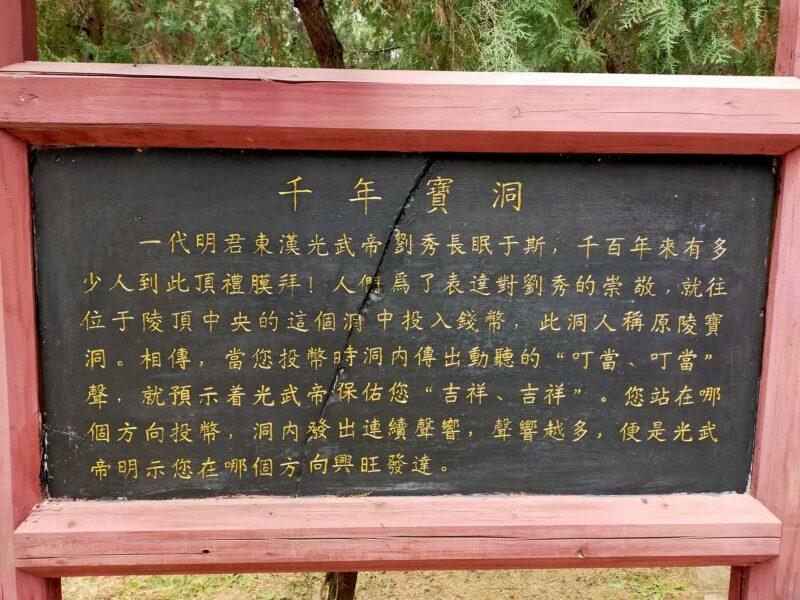 千年寶洞
一代明君東漢光武帝劉秀長眠于斯，千百年來有多
少人到此頂禮膜拜！人們爲了表達對劉秀的崇敬，就往
位于陵頂中央的這個洞中投入錢幣，此洞人稱原陵寶
洞。相傳，當您投幣時洞内傳出動聽的“叮當、叮當”
聲，就預示着光武帝保佑您“吉祥、吉祥”。您站在哪
個方向投幣，洞内發出連續聲響，聲響越多，便是光武
帝明示您在哪個方向興旺發達。